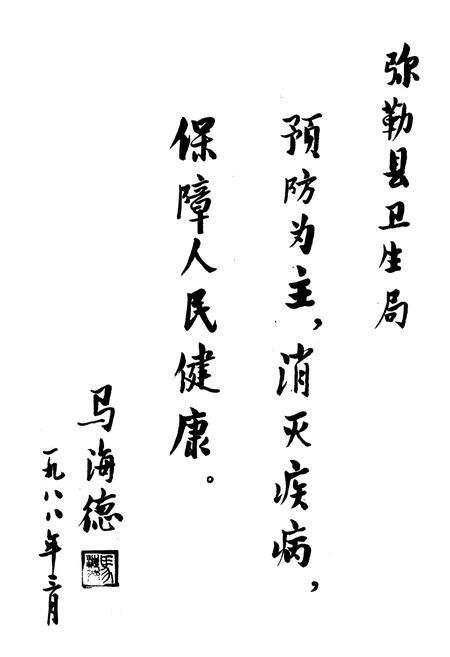 弥勒县卫生局
预防为主,消灭疾病,
保障人民健康。
马海德
一九八八年三月